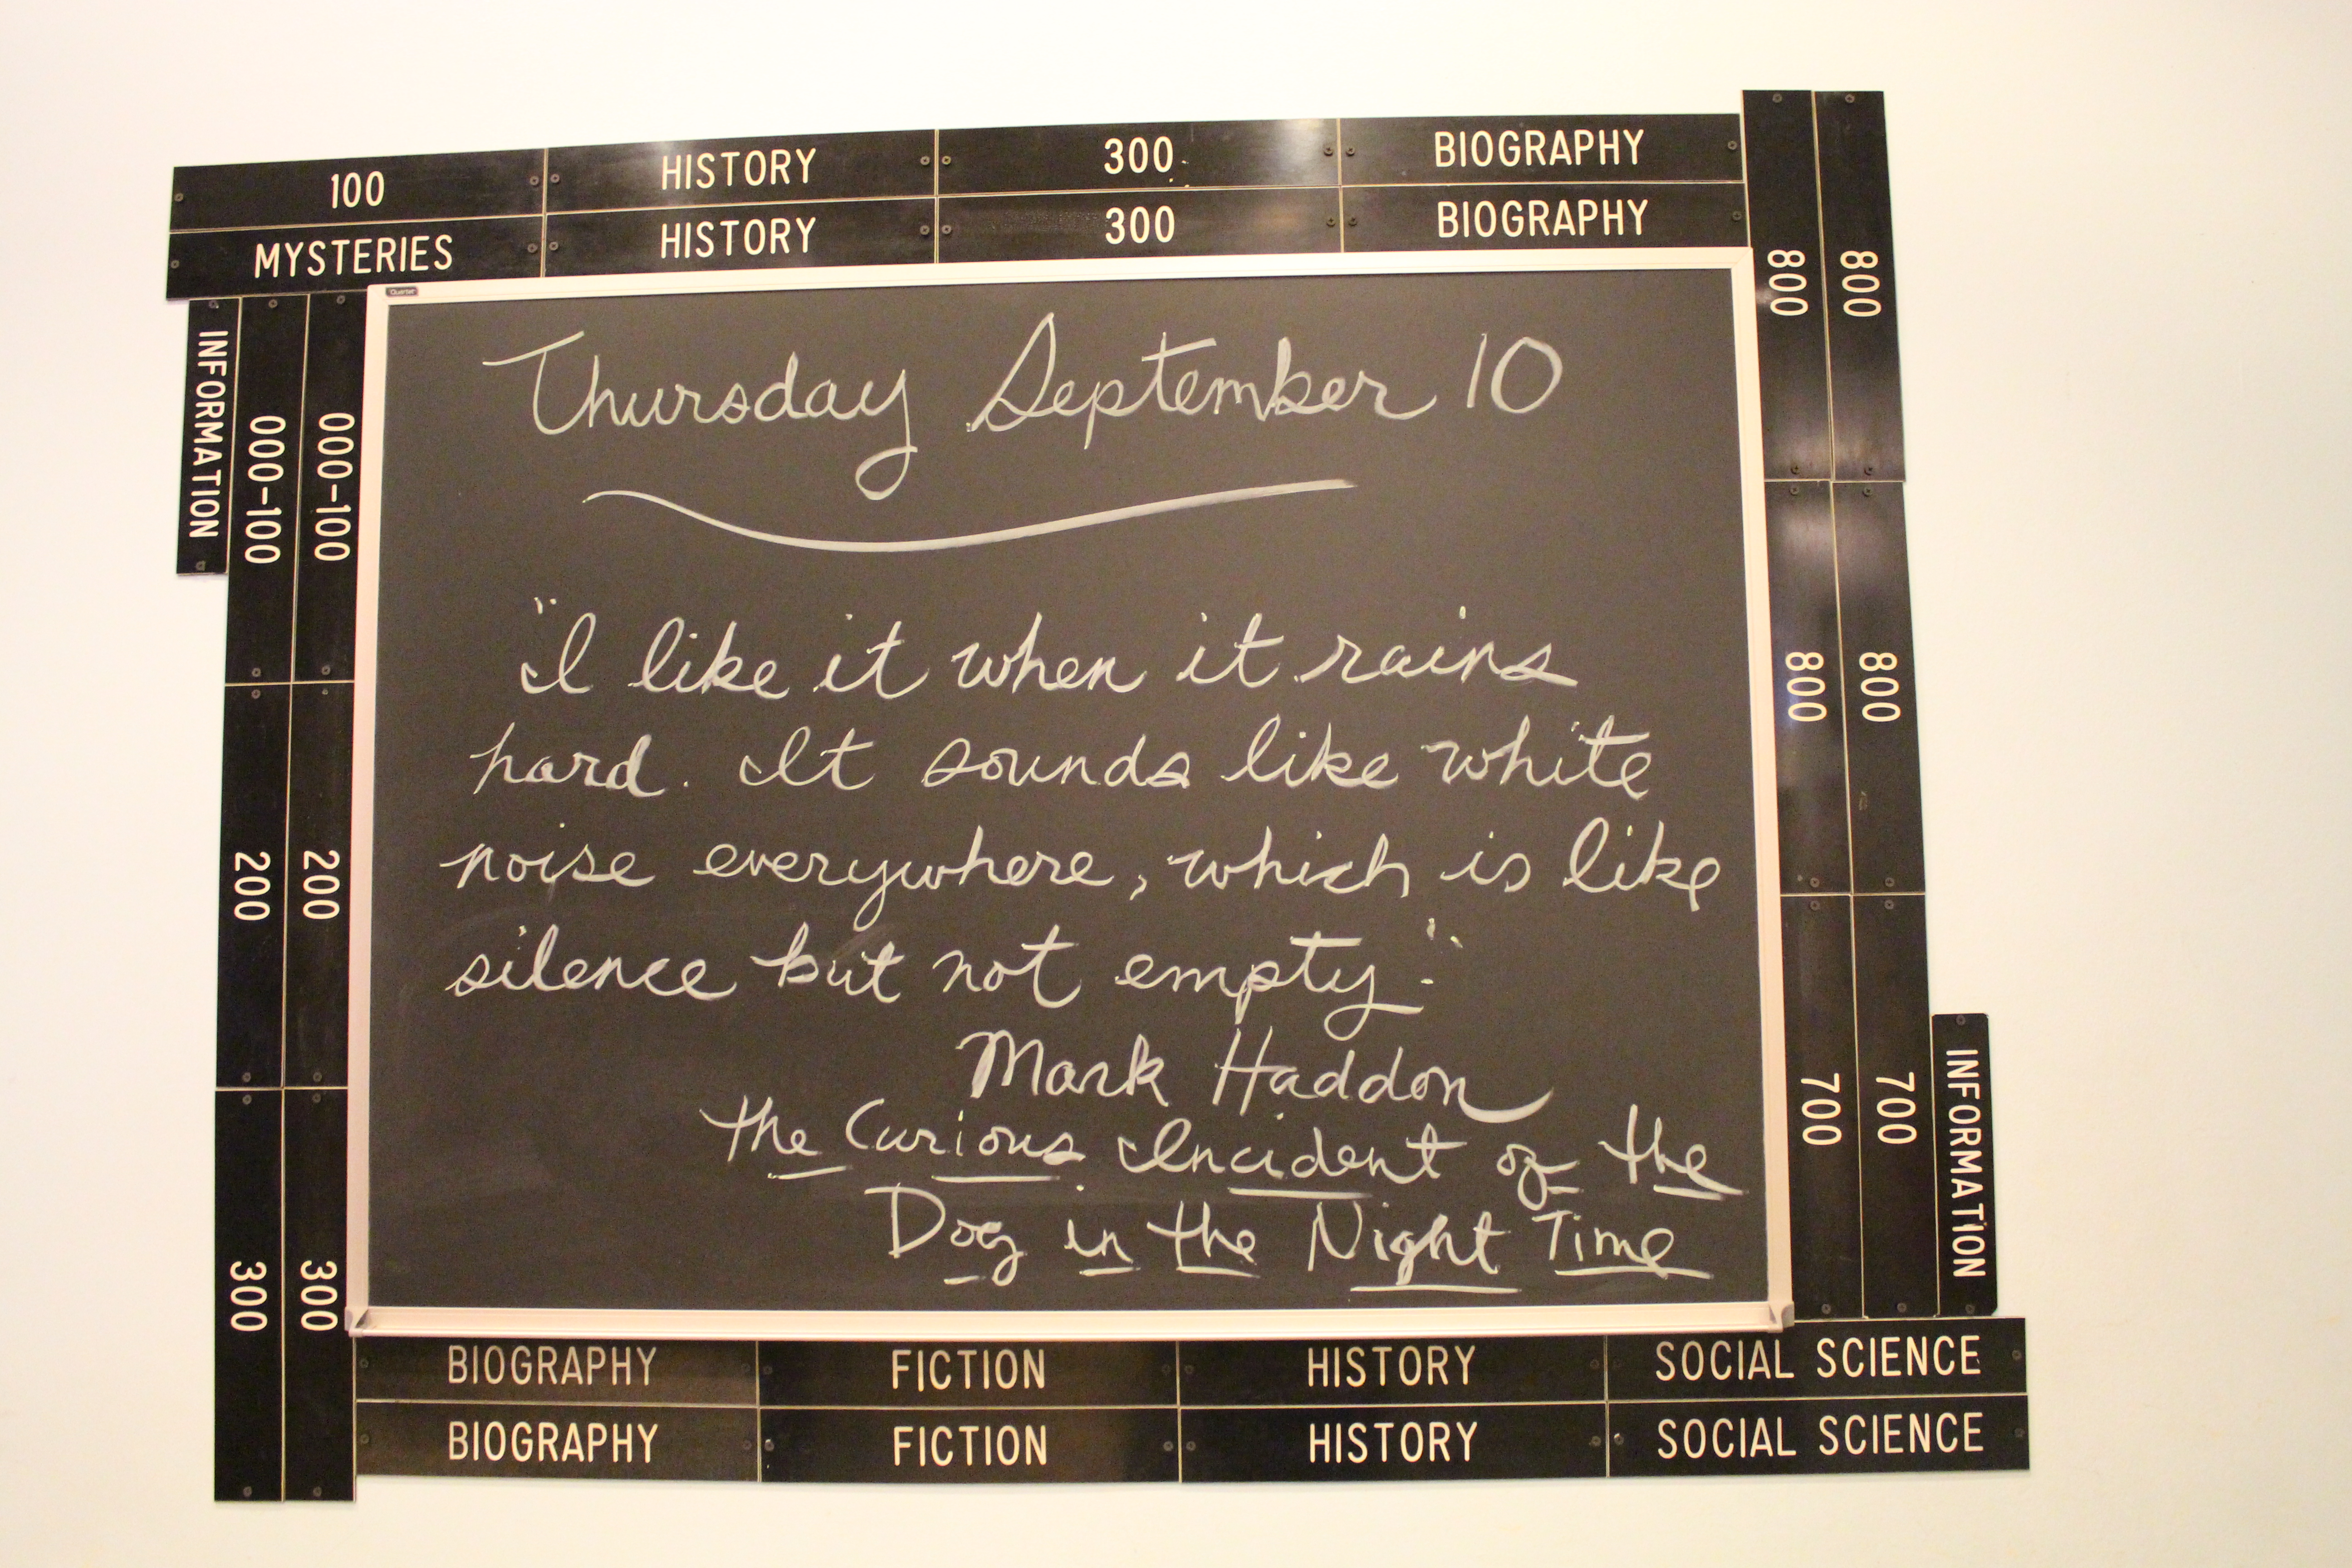 100 HISTORY 300 BIOGRAPHY
MYSTERIES HISTORY 300 BIOGRAPHY
INFORMATION
000-100
000-100
200
200
300
300
Quartet
Thursday September 10
"I like it when it rains
hard. It sounds like white
noise everywhere, which is like
silence but not empty."
Mark Haddon
the Curious Incident of the
Dog in the Night Time
800
800
800
800
700
700
INFORMATION
BIOGRAPHY FICTION HISTORY SOCIAL SCIENCE
BIOGRAPHY FICTION HISTORY SOCIAL SCIENCE